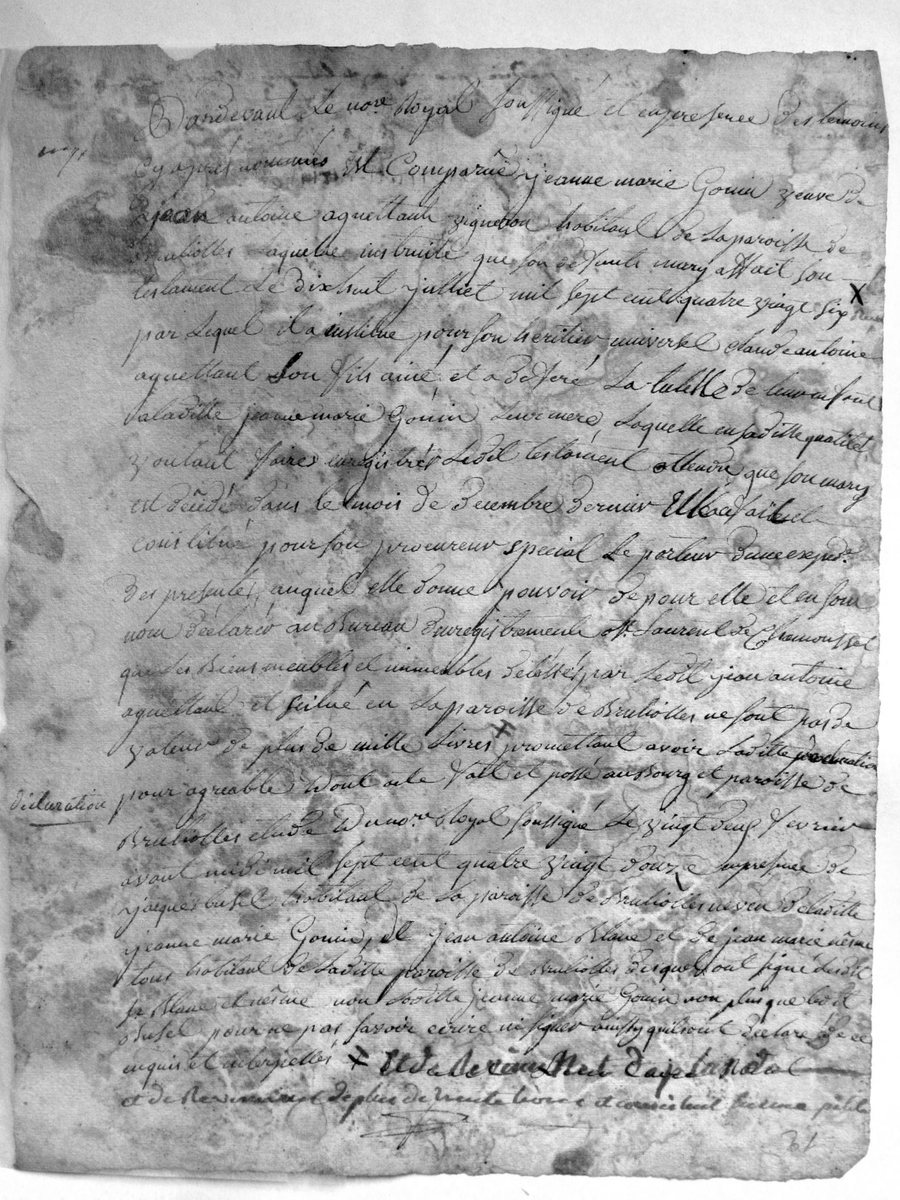 Pardevant Le nore Royal soussigné et en presence des temoins
cy après nommés est Comparüe jeanne marie Gonin veuve de
jean antoine aquettant vigneron habitant de la paroisse de
Brulliolles laquelle instruite que son deffunt mary a ffait son
testament Le dixhuit juilliet mil sept cent quatre vingt six X
par Lequel il a institué pour son heritier universel claude antoine
aquettant son fils ainé, et a deferé La tutelle de leurs enfant
a laditte jeanne marie Gonin Leur mere, Laquelle en saditte qualité
voulant faire enregistrér Ledit testament attendu que son mary
est décédé dans le mois de Decembre dernier a fait et
constitué pour son procureur special Le porteur d'une exped.
des presentes, auquel elle donne pouvoir de pour elle et en son
nom déclarér au Bureau d'enregistrement de St Laurent de Chamousset
que les Biens meubles et immeubles délessés par Ledit jean antoine
aquettant et scitué en La paroisse de Brulliolles ne sont pas de
valeur de plus de mille Livres X promettant avoir Laditte déclaration
pour agreable Dont acte fait et passé au Bourg et paroisse de
déclaration
Brulliolles etude Du nore Royal soussigné Le vingt deux fevrier
avant midi mil sept cent quatre vingt douze en presence de
jacques Busel habitant de La paroisse de Brulliolles neveu de laditte
jeanne marie Gonin, de jean antoine Blanc et de jean marie même
tous habitant de Laditte paroisse de Brulliolles desquels ont signé Lesdit
Sr Blanc et même non Laditte jeanne marie Gonin non plus que ledit
Busel pour ne pas savoir écrire ni signer ainssy quils ont déclaré de ce
enquis et interpellés X et de Revenu
et de Revenu de plus de trente livres
31